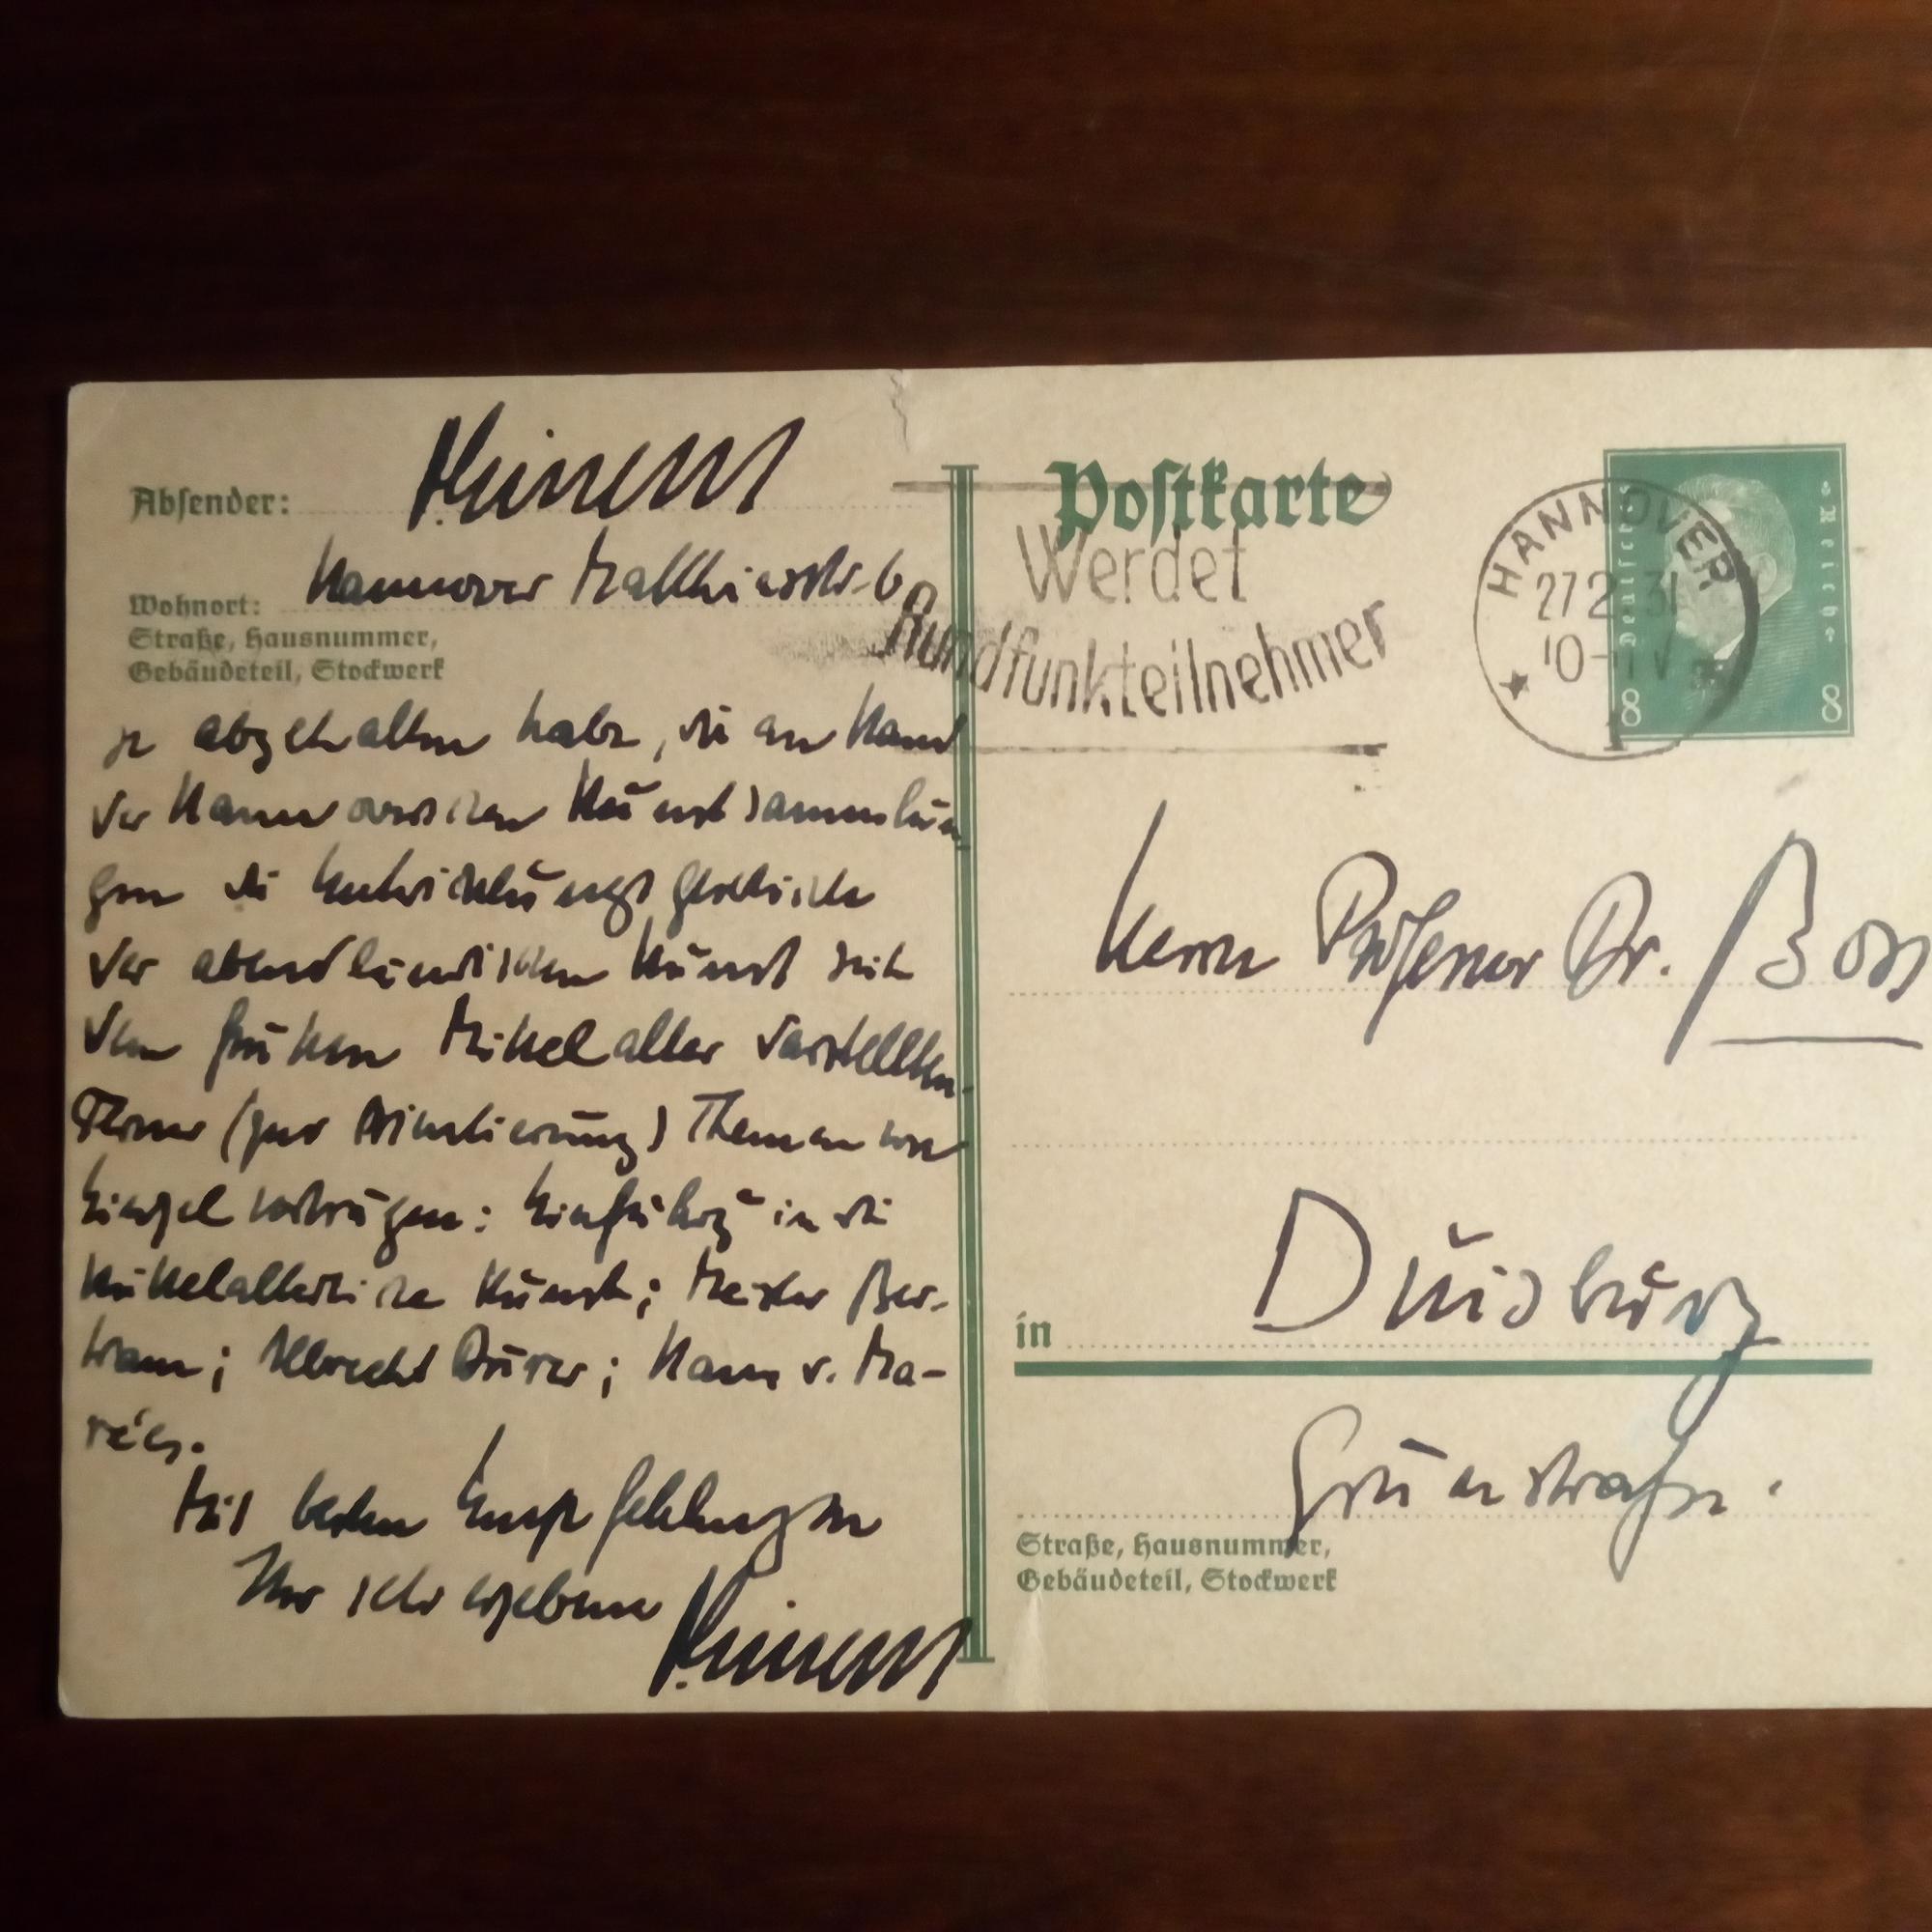 Absender:
Hannover Matthiasstr. 6
Wohnort:
Straße, Hausnummer,
Gebäudeteil, Stockwerk
je abgehalten habe, die an Hand
der Hannoverschen Kunstsammlun
gen die Entwicklungsgeschichte
der abendländischen Kunst seit
dem frühen Mittelalter darstellten.
Ferner (zur Orientierung) Themen von
Einzelvorträgen: Einführg in die
mittelalterliche Kunst; Meister Ber-
tram; Albrecht Dürer; Hans v. Ma-
rées.
Mit besten Empfehlungen
Ihr sehr ergebener
Postkarte
Werdet
Rundfunkteilnehmer
HANNOVER
27.2.31
10-11 V
1
Deutsches Reich
8 8
Herrn Professor Dr.
in Duisburg
Grünstraße.
Straße, Hausnummer,
Gebäudeteil, Stockwerk